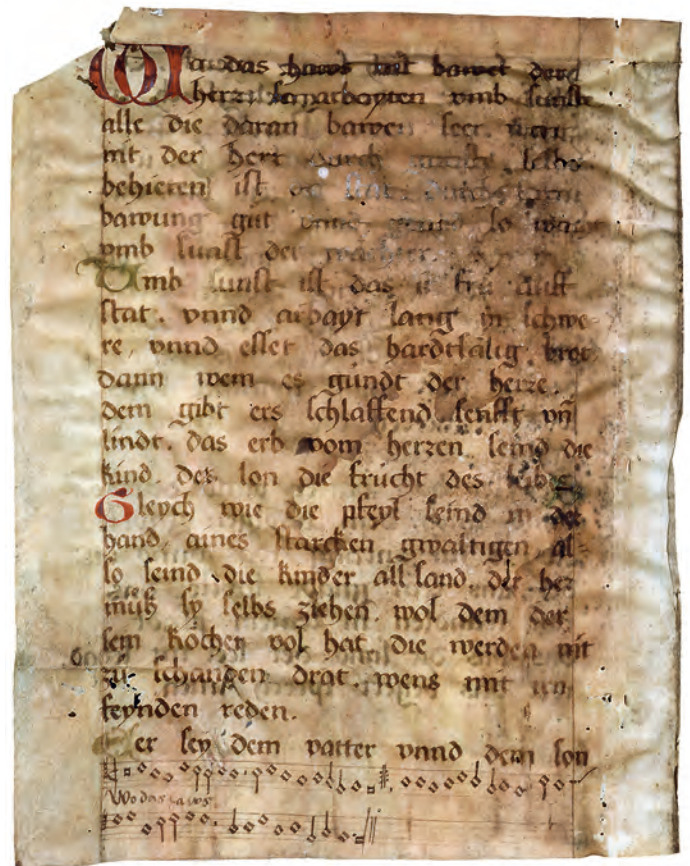 Wa das haws nit bawet der
herr so arbayten vmb sunst
alle die daran bawen seer. wan
nit der herr durch selbs
behieten ist
bawung gut vnnd so
vmb sunst der wachter
Vmb sunst ist das ir fru auff
stat. vnnd arbayt lang in schwe-
re, vnnd esset das hardtsälig brot
dann wem es gündt der herre.
dem gibt ers schlaffend senfft vn̄
lindt. das erb vom herren seind die
kind. der lon die frucht des leibs
Gleych wie die pfeyl seind in der
hand aines starcken gwaltigen al-
so seind die kinder all sand. der her
müß sy selbs ziehen. wol dem der
sein kocher vol hat. die werden nit
zü schanden drat. wens mit irn
feynden reden.
er sey dem vatter vnnd dem son
Wo das haws